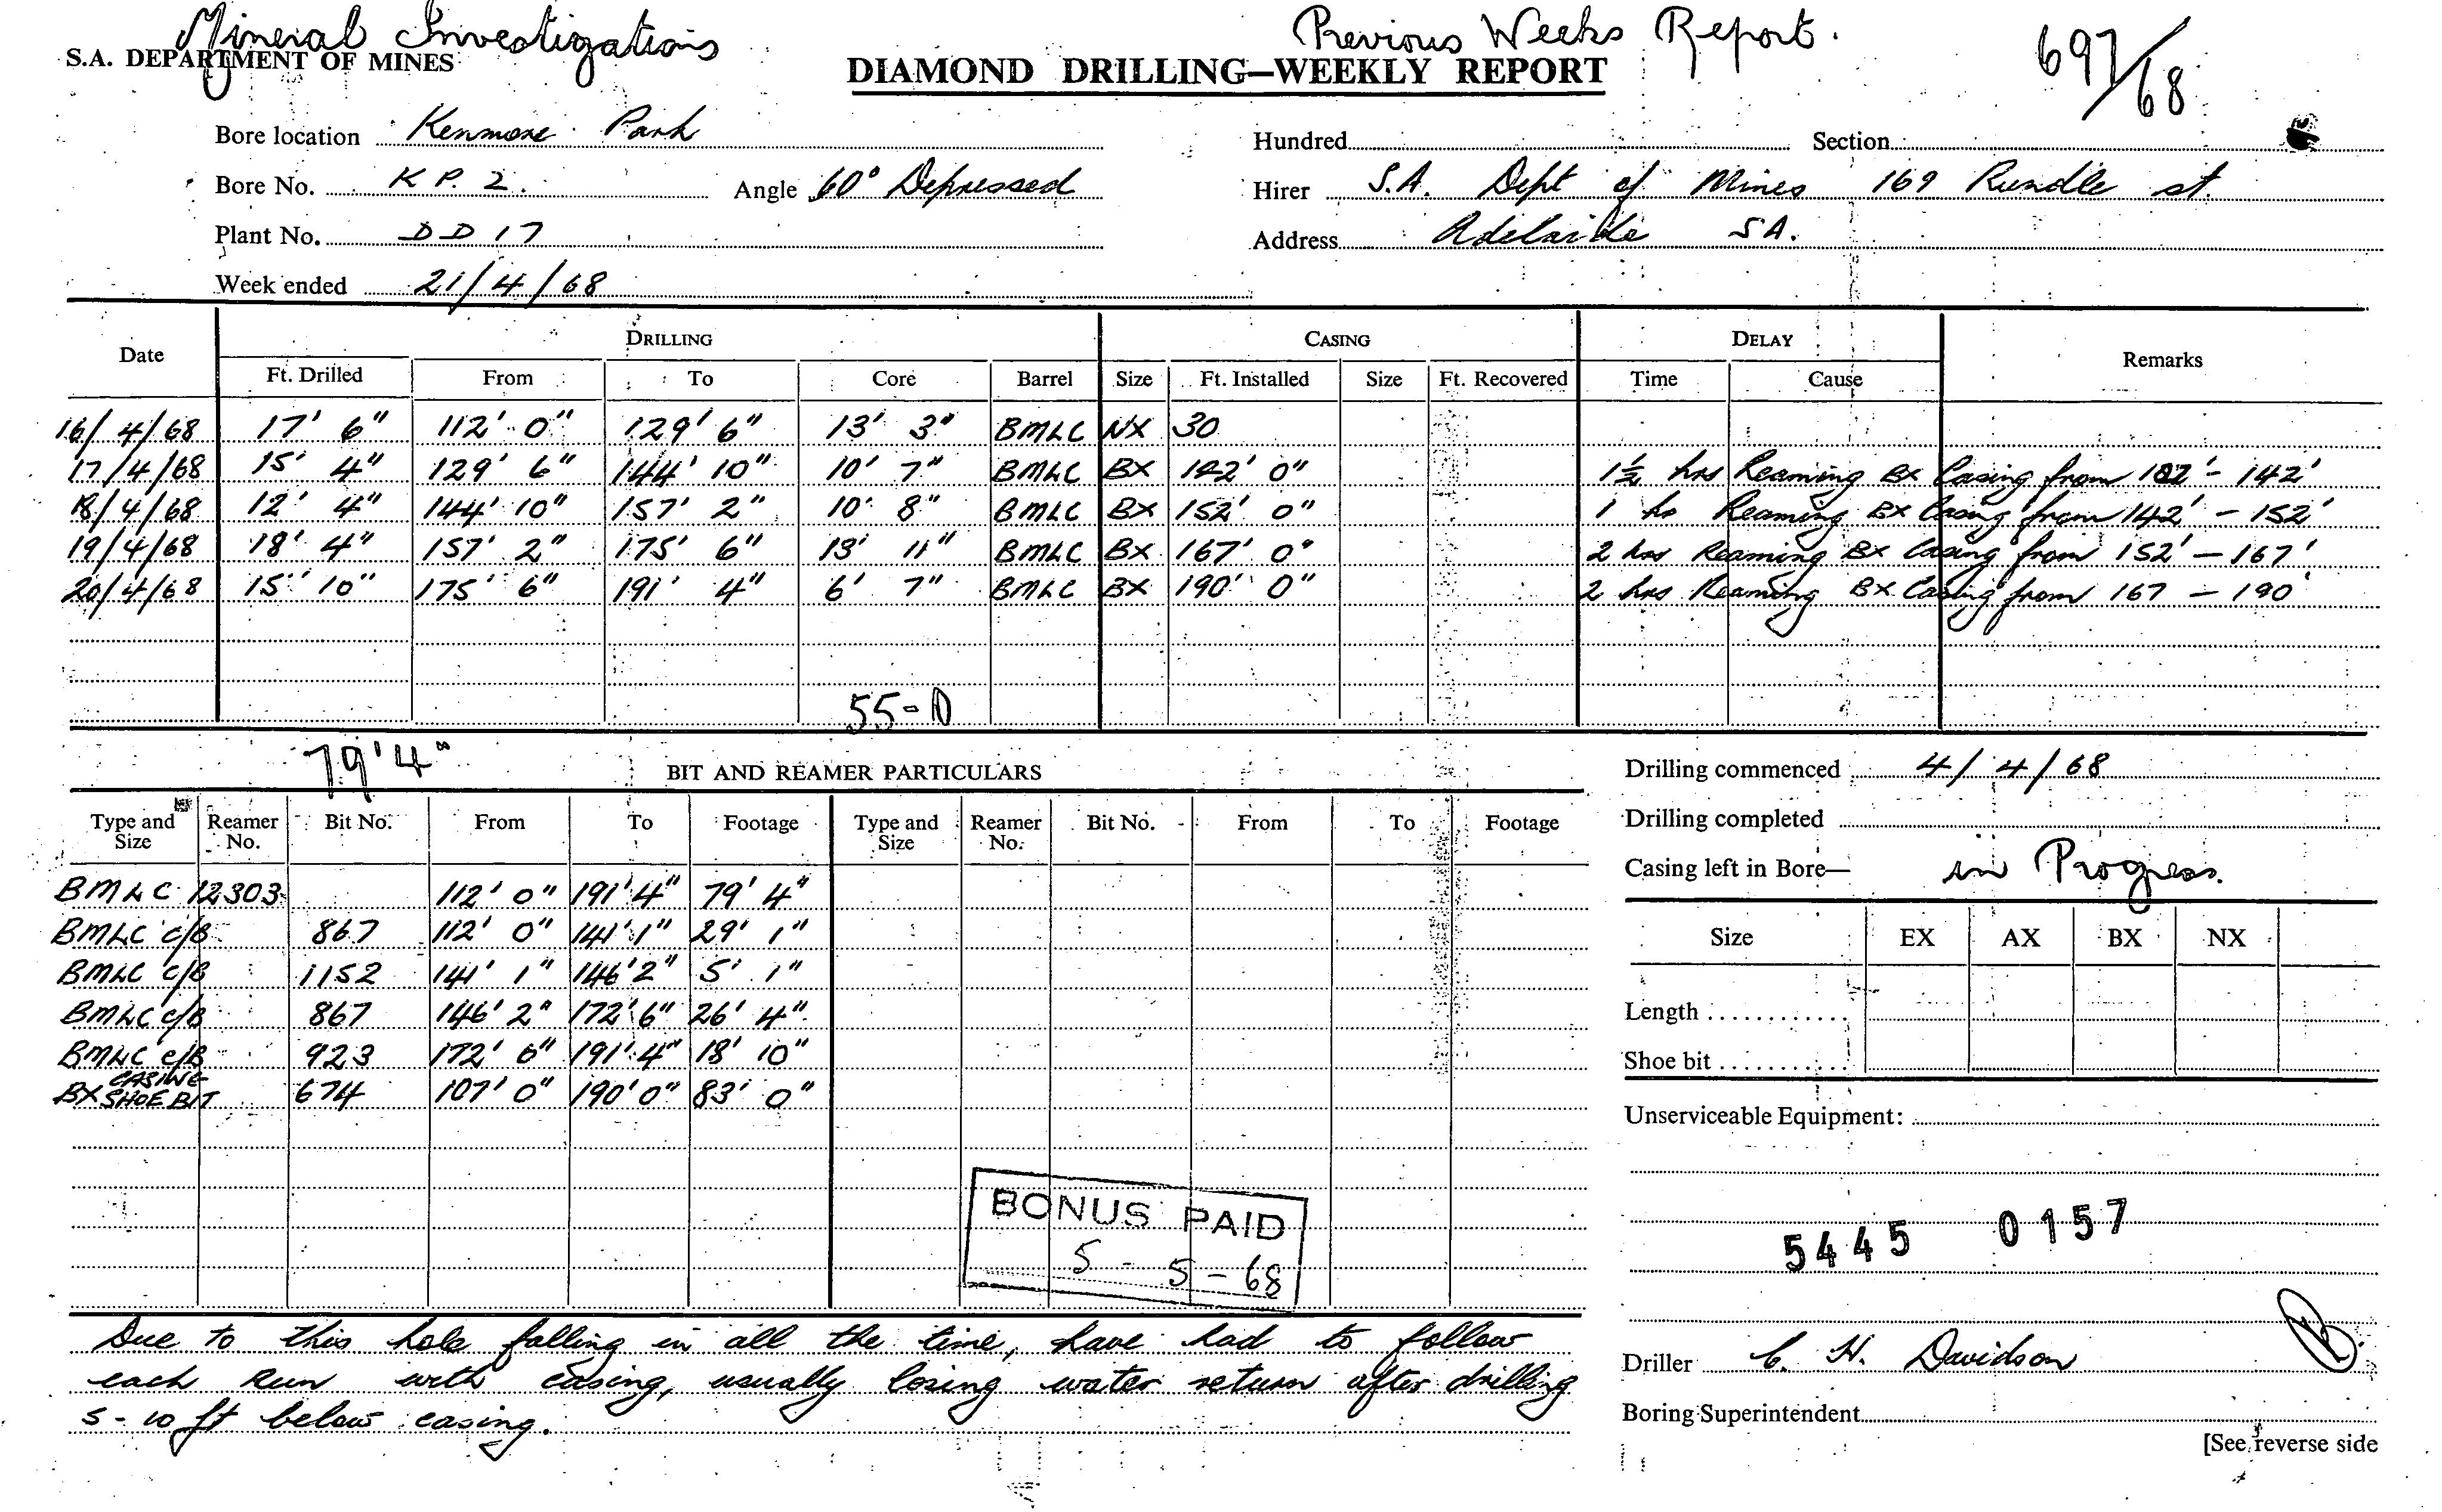 Mineral Investigations
Previous Weeks Report.
697/68
S.A. DEPARTMENT OF MINES
DIAMOND DRILLING—WEEKLY REPORT
Bore location Kenmore Park
Hundred Section
Bore No. K P. 2. Angle 60° Depressed
Hirer S.A. Dept of Mines 169 Rundle st.
Plant No. DD 17
Address Adelaide S.A.
Week ended 21/4/68
Date DRILLING CASING DELAY Remarks
Ft. Drilled From To Core Barrel Size Ft. Installed Size Ft. Recovered Time Cause
16/4/68 17' 6" 112' 0" 129' 6" 13' 3" BMLC NX 30
17/4/68 15' 4" 129' 6" 144' 10" 10' 7" BMLC BX 142' 0" 1½ hrs Reaming BX Casing from - 142'
18/4/68 12' 4" 144' 10" 157' 2" 10' 8" BMLC BX 152' 0" 1 hr Reaming BX Casing from 142' - 152'
19/4/68 18' 4" 157' 2" 175' 6" 13' 11" BMLC BX 167' 0" 2 hrs Reaming BX Casing from 152' - 167'
20/4/68 15' 10" 175' 6" 191' 4" 6' 7" BMLC BX 190' 0" 2 hrs Reaming BX Casing from 167 - 190'
55-0
79'4"
BIT AND REAMER PARTICULARS
Drilling commenced 4/4/68
Type and Size Reamer No. Bit No. From To Footage Type and Size Reamer No. Bit No. From To Footage
Drilling completed
Casing left in Bore— in Progress.
BMLC 12303 112' 0" 191' 4" 79' 4"
BMLC c/B 867 112' 0" 141' 1" 29' 1"
BMLC c/B 1152 141' 1" 146' 2" 5' 1"
BMLC c/B 867 146' 2" 172' 6" 26' 4"
BMLC c/B 923 172' 6" 191' 4" 18' 10"
BX CASING SHOE BIT 674 107' 0" 190' 0" 83' 0"
Size EX AX BX NX
Length
Shoe bit
Unserviceable Equipment:
BONUS PAID
5 - 5 - 68
5445 0157
Due to this hole falling in all the time, have had to follow
each run with casing, usually losing water return after drilling
5-10 ft below casing.
Driller C. H. Davidson
Boring Superintendent
[See reverse side